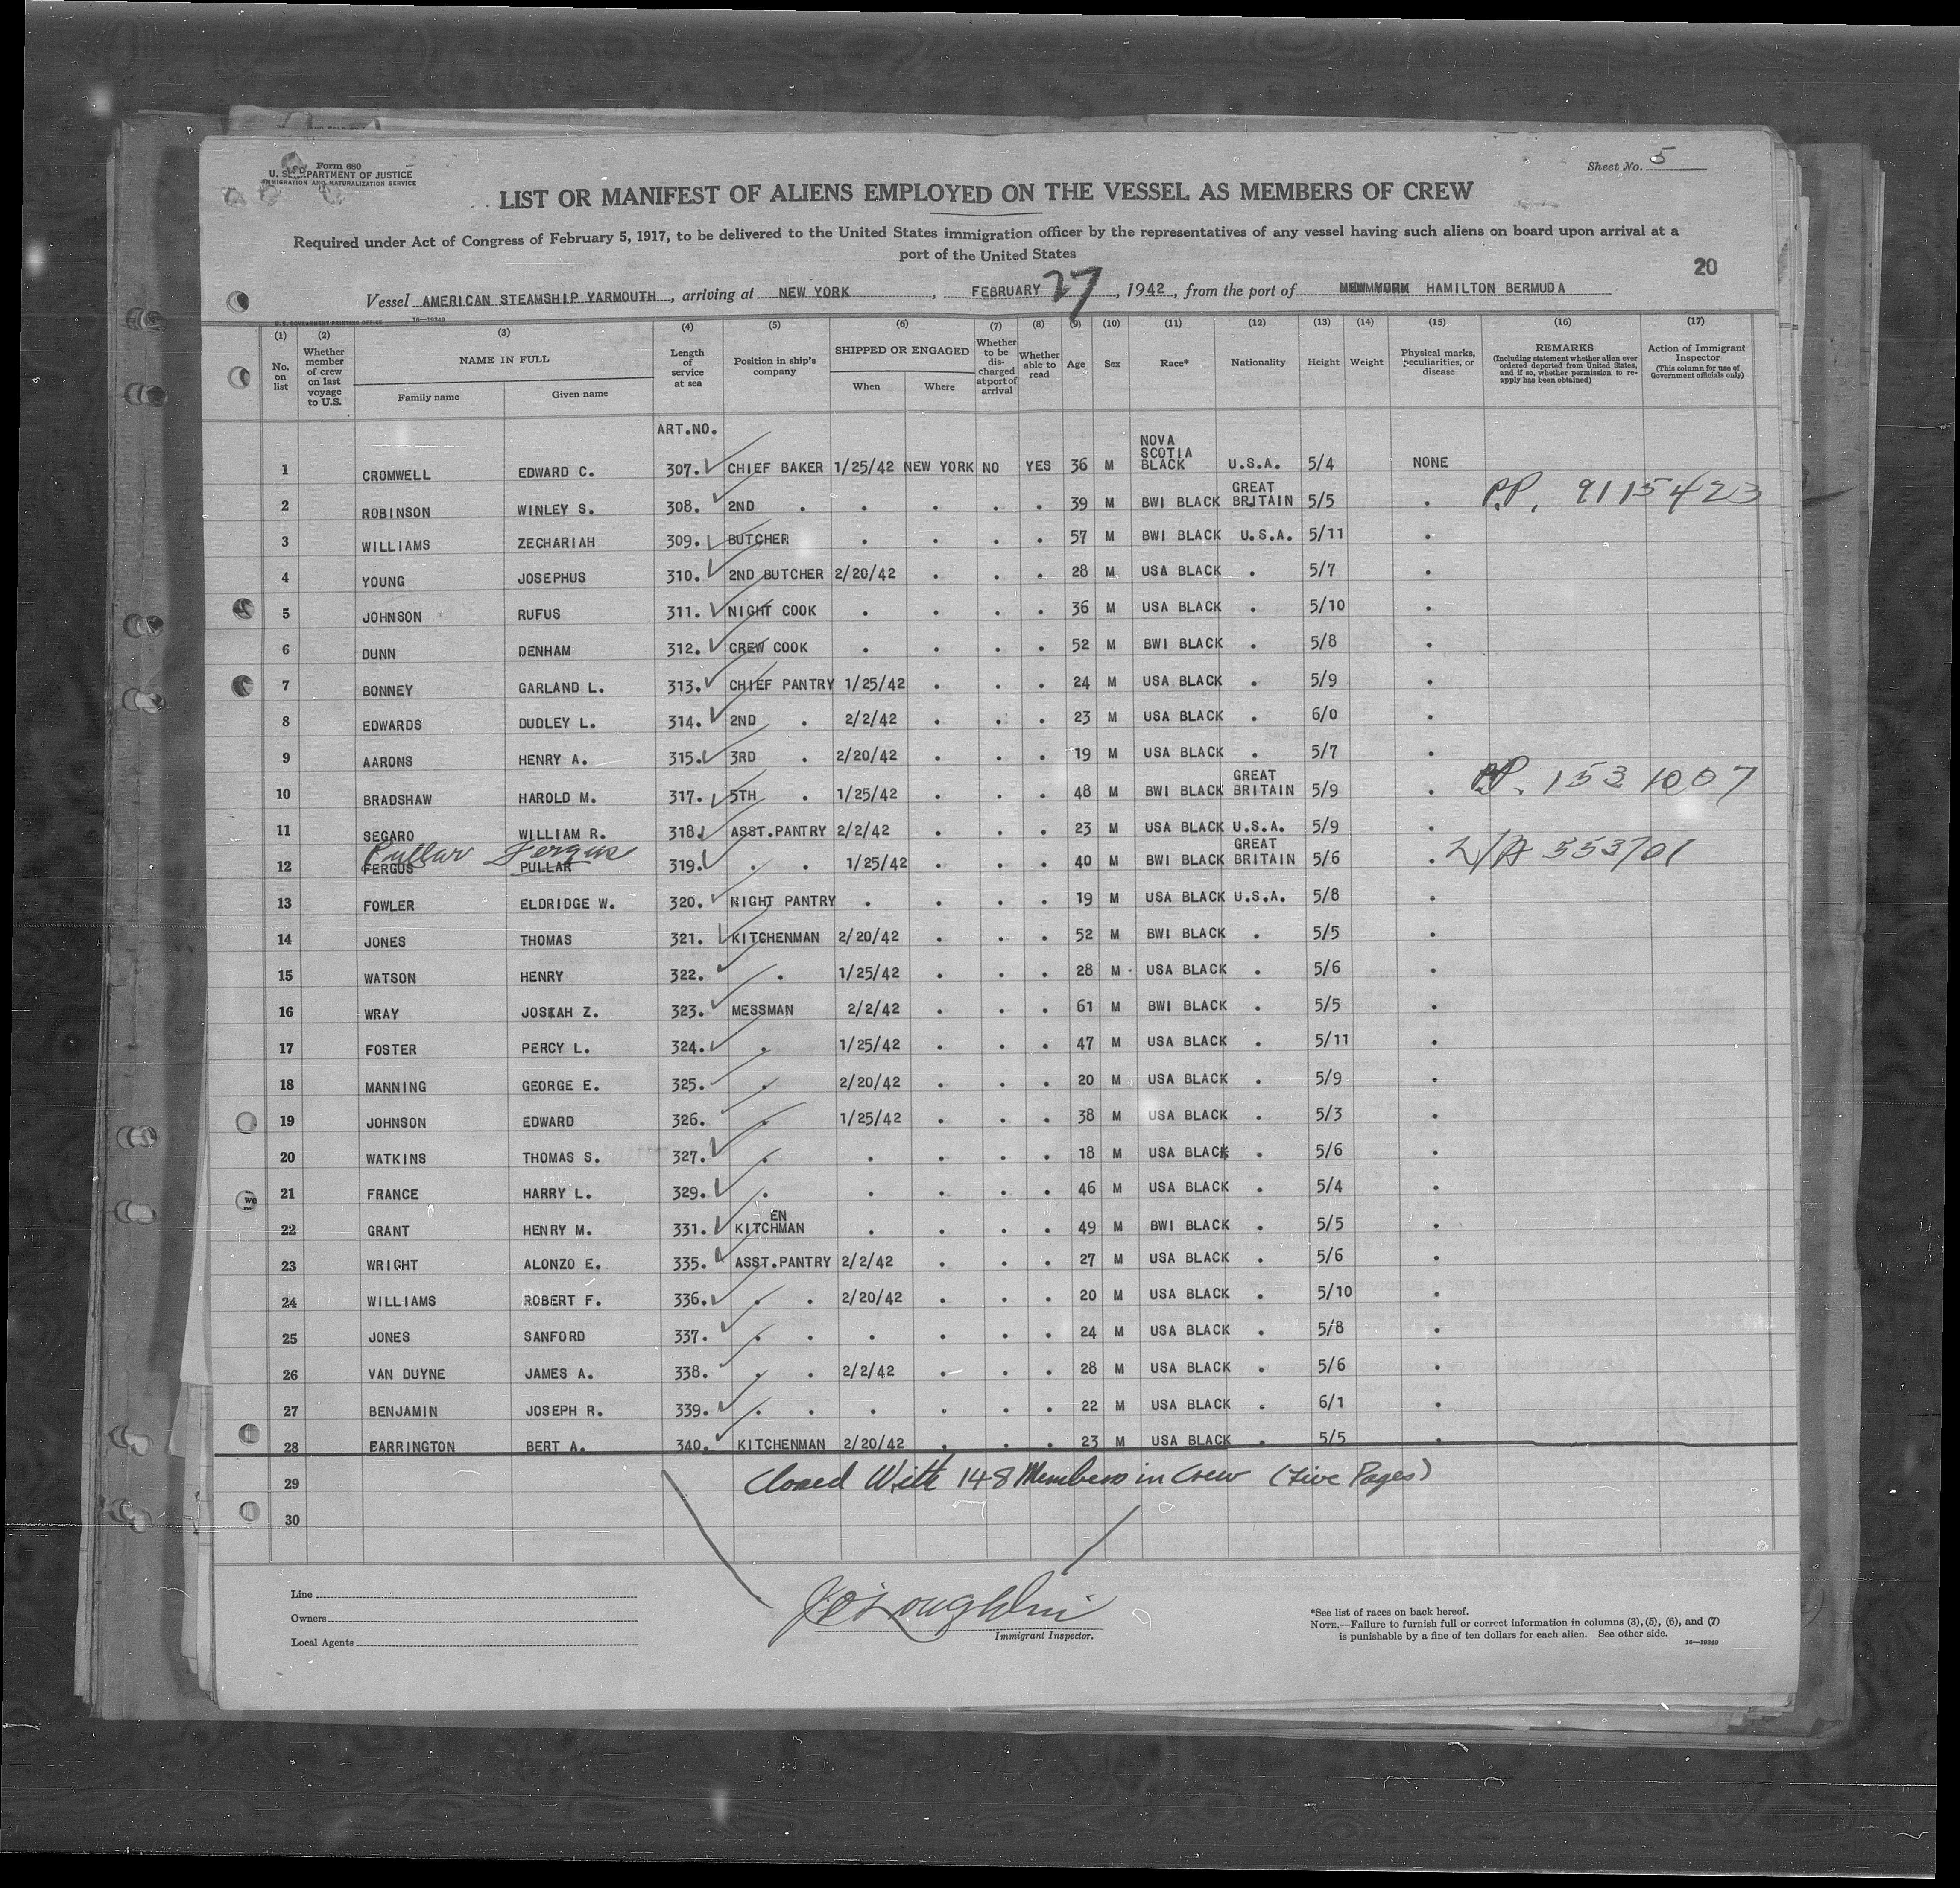 Form 680
U. S. DEPARTMENT OF JUSTICE
IMMIGRATION AND NATURALIZATION SERVICE
Sheet No. 5
LIST OR MANIFEST OF ALIENS EMPLOYED ON THE VESSEL AS MEMBERS OF CREW
Required under Act of Congress of February 5, 1917, to be delivered to the United States immigration officer by the representatives of any vessel having such aliens on board upon arrival at a
port of the United States
20
Vessel AMERICAN STEAMSHIP YARMOUTH, arriving at NEW YORK, FEBRUARY 27, 1942, from the port of HAMILTON BERMUDA
U.S. GOVERNMENT PRINTING OFFICE 16—19349
(1) (2) (3) (4) (5) (6) (7) (8) (9) (10) (11) (12) (13) (14) (15) (16) (17)
No. on list
Whether member of crew on last voyage to U.S.
NAME IN FULL
Family name Given name
Length of service at sea
Position in ship's company
SHIPPED OR ENGAGED
When Where
Whether to be discharged at port of arrival
Whether able to read
Age
Sex
Race*
Nationality
Height
Weight
Physical marks, peculiarities, or disease
REMARKS
(Including statement whether alien ever ordered deported from United States, and if so, whether permission to reapply has been obtained)
Action of Immigrant Inspector
(This column for use of Government officials only)
ART.NO.
1 CROMWELL EDWARD C. 307. CHIEF BAKER 1/25/42 NEW YORK NO YES 36 M NOVA SCOTIA BLACK U.S.A. 5/4 NONE
2 ROBINSON WINLEY S. 308. 2ND . . . . . 39 M BWI BLACK GREAT BRITAIN 5/5 . P.P. 9115423
3 WILLIAMS ZECHARIAH 309. BUTCHER . . . . 57 M BWI BLACK U.S.A. 5/11 .
4 YOUNG JOSEPHUS 310. 2ND BUTCHER 2/20/42 . . . 28 M USA BLACK . 5/7 .
5 JOHNSON RUFUS 311. NIGHT COOK . . . . 36 M USA BLACK . 5/10 .
6 DUNN DENHAM 312. CREW COOK . . . . 52 M BWI BLACK . 5/8 .
7 BONNEY GARLAND L. 313. CHIEF PANTRY 1/25/42 . . . 24 M USA BLACK . 5/9 .
8 EDWARDS DUDLEY L. 314. 2ND . 2/2/42 . . . 23 M USA BLACK . 6/0 .
9 AARONS HENRY A. 315. 3RD . 2/20/42 . . . 19 M USA BLACK . 5/7 .
10 BRADSHAW HAROLD M. 317. 5TH . 1/25/42 . . . 48 M BWI BLACK GREAT BRITAIN 5/9 . P.P. 1531007
11 SEGARO WILLIAM R. 318. ASST.PANTRY 2/2/42 . . . 23 M USA BLACK U.S.A. 5/9 .
Pullar Fergus
12 FERGUS PULLAR 319. . . 1/25/42 . . . 40 M BWI BLACK GREAT BRITAIN 5/6 . L/A 553701
13 FOWLER ELDRIDGE W. 320. NIGHT PANTRY . . . . 19 M USA BLACK U.S.A. 5/8 .
14 JONES THOMAS 321. KITCHENMAN 2/20/42 . . . 52 M BWI BLACK . 5/5 .
15 WATSON HENRY 322. . 1/25/42 . . . 28 M USA BLACK . 5/6 .
16 WRAY JOSIAH Z. 323. MESSMAN 2/2/42 . . . 61 M BWI BLACK . 5/5 .
17 FOSTER PERCY L. 324. . 1/25/42 . . . 47 M USA BLACK . 5/11 .
18 MANNING GEORGE E. 325. . 2/20/42 . . . 20 M USA BLACK . 5/9 .
19 JOHNSON EDWARD 326. . 1/25/42 . . . 38 M USA BLACK . 5/3 .
20 WATKINS THOMAS S. 327. . . . . . 18 M USA BLACK . 5/6 .
21 FRANCE HARRY L. 329. . . . . . 46 M USA BLACK . 5/4 .
EN
22 GRANT HENRY M. 331. KITCHMAN . . . . 49 M BWI BLACK . 5/5 .
23 WRIGHT ALONZO E. 335. ASST.PANTRY 2/2/42 . . . 27 M USA BLACK . 5/6 .
24 WILLIAMS ROBERT F. 336. . . 2/20/42 . . . 20 M USA BLACK . 5/10 .
25 JONES SANFORD 337. . . . . . . 24 M USA BLACK . 5/8 .
26 VAN DUYNE JAMES A. 338. . . 2/2/42 . . . 28 M USA BLACK . 5/6 .
27 BENJAMIN JOSEPH R. 339. . . . . . . 22 M USA BLACK . 6/1 .
28 EARRINGTON BERT A. 340. KITCHENMAN 2/20/42 . . . 23 M USA BLACK . 5/5 .
29 Closed With 148 Members in Crew (Five Pages)
30
Line
Owners
Local Agents
J O'Loughlin
Immigrant Inspector.
*See list of races on back hereof.
NOTE.—Failure to furnish full or correct information in columns (3), (5), (6), and (7)
is punishable by a fine of ten dollars for each alien. See other side.
16—19349